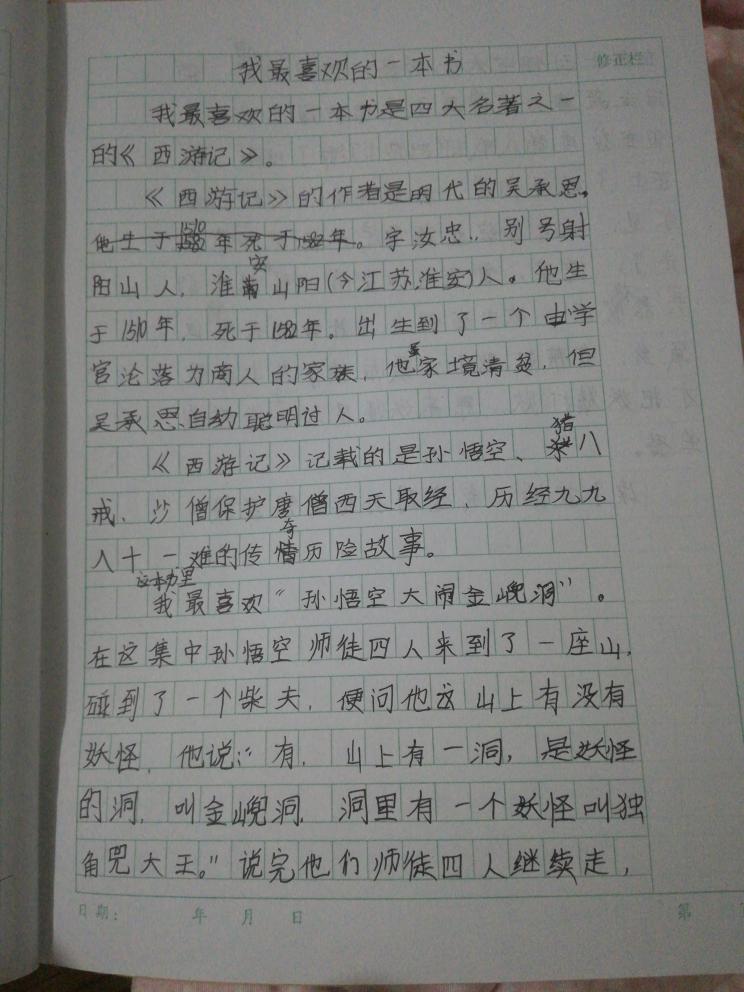 我最喜欢的一本书
修正栏
我最喜欢的一本书是四大名著之一
的《西游记》。
《西游记》的作者是明代的吴承恩。
他生于1510年死于1582年。字汝忠,别号射
阳山人,淮安山阳(今江苏淮安)人。他生
于1510年,死于1582年。出生到了一个由学
官沦落为商人的家族,他虽家境清贫,但
吴承恩自幼聪明过人。
《西游记》记载的是孙悟空、猪八
戒、沙僧保护唐僧西天取经,历经九九
八十一难的传奇历险故事。
这本书里
我最喜欢"孙悟空大闹金𡶴洞"。
在这集中孙悟空师徒四人来到了一座山,
碰到了一个柴夫,便问他这山上有没有
妖怪,他说:"有,山上有一洞,是妖怪
的洞,叫金𡶴洞,洞里有一个妖怪叫独
角兕大王。"说完他们师徒四人继续走,
日期: 年 月 日
第